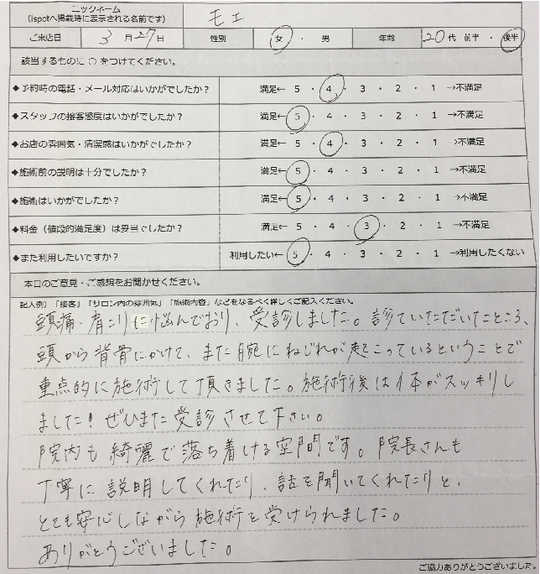 ニックネーム
(ispotへ掲載時に表示される名前です)
モエ
ご来店日 3月27日 性別 女・男 年齢 20代 前半・後半
該当するものに○をつけてください。
◆予約時の電話・メール対応はいかがでしたか? 満足← 5 ・ 4 ・ 3 ・ 2 ・ 1 →不満足
◆スタッフの接客態度はいかがでしたか? 満足← 5 ・ 4 ・ 3 ・ 2 ・ 1 →不満足
◆お店の雰囲気・清潔感はいかがでしたか? 満足← 5 ・ 4 ・ 3 ・ 2 ・ 1 →不満足
◆施術前の説明は十分でしたか? 満足← 5 ・ 4 ・ 3 ・ 2 ・ 1 →不満足
◆施術はいかがでしたか? 満足← 5 ・ 4 ・ 3 ・ 2 ・ 1 →不満足
◆料金(値段的満足度)は妥当でしたか? 満足← 5 ・ 4 ・ 3 ・ 2 ・ 1 →不満足
◆また利用したいですか? 利用したい← 5 ・ 4 ・ 3 ・ 2 ・ 1 →利用したくない
本日のご意見・ご感想をお聞かせください。
記入例)「接客」「サロン内の雰囲気」「施術内容」などをなるべく詳しくご記入ください。
頭痛・肩こりに悩んでおり、受診しました。診ていただいたところ、
頭から背骨にかけて、また腕にねじれが起こっているということで
重点的に施術して頂きました。施術後は体がスッキリし
ました!ぜひまた受診させて下さい。
院内も綺麗で落ち着ける空間です。院長さんも
丁寧に説明してくれたり、話を聞いてくれたりと、
とても安心しながら施術を受けられました。
ありがとうございました。
ご協力ありがとうございました。